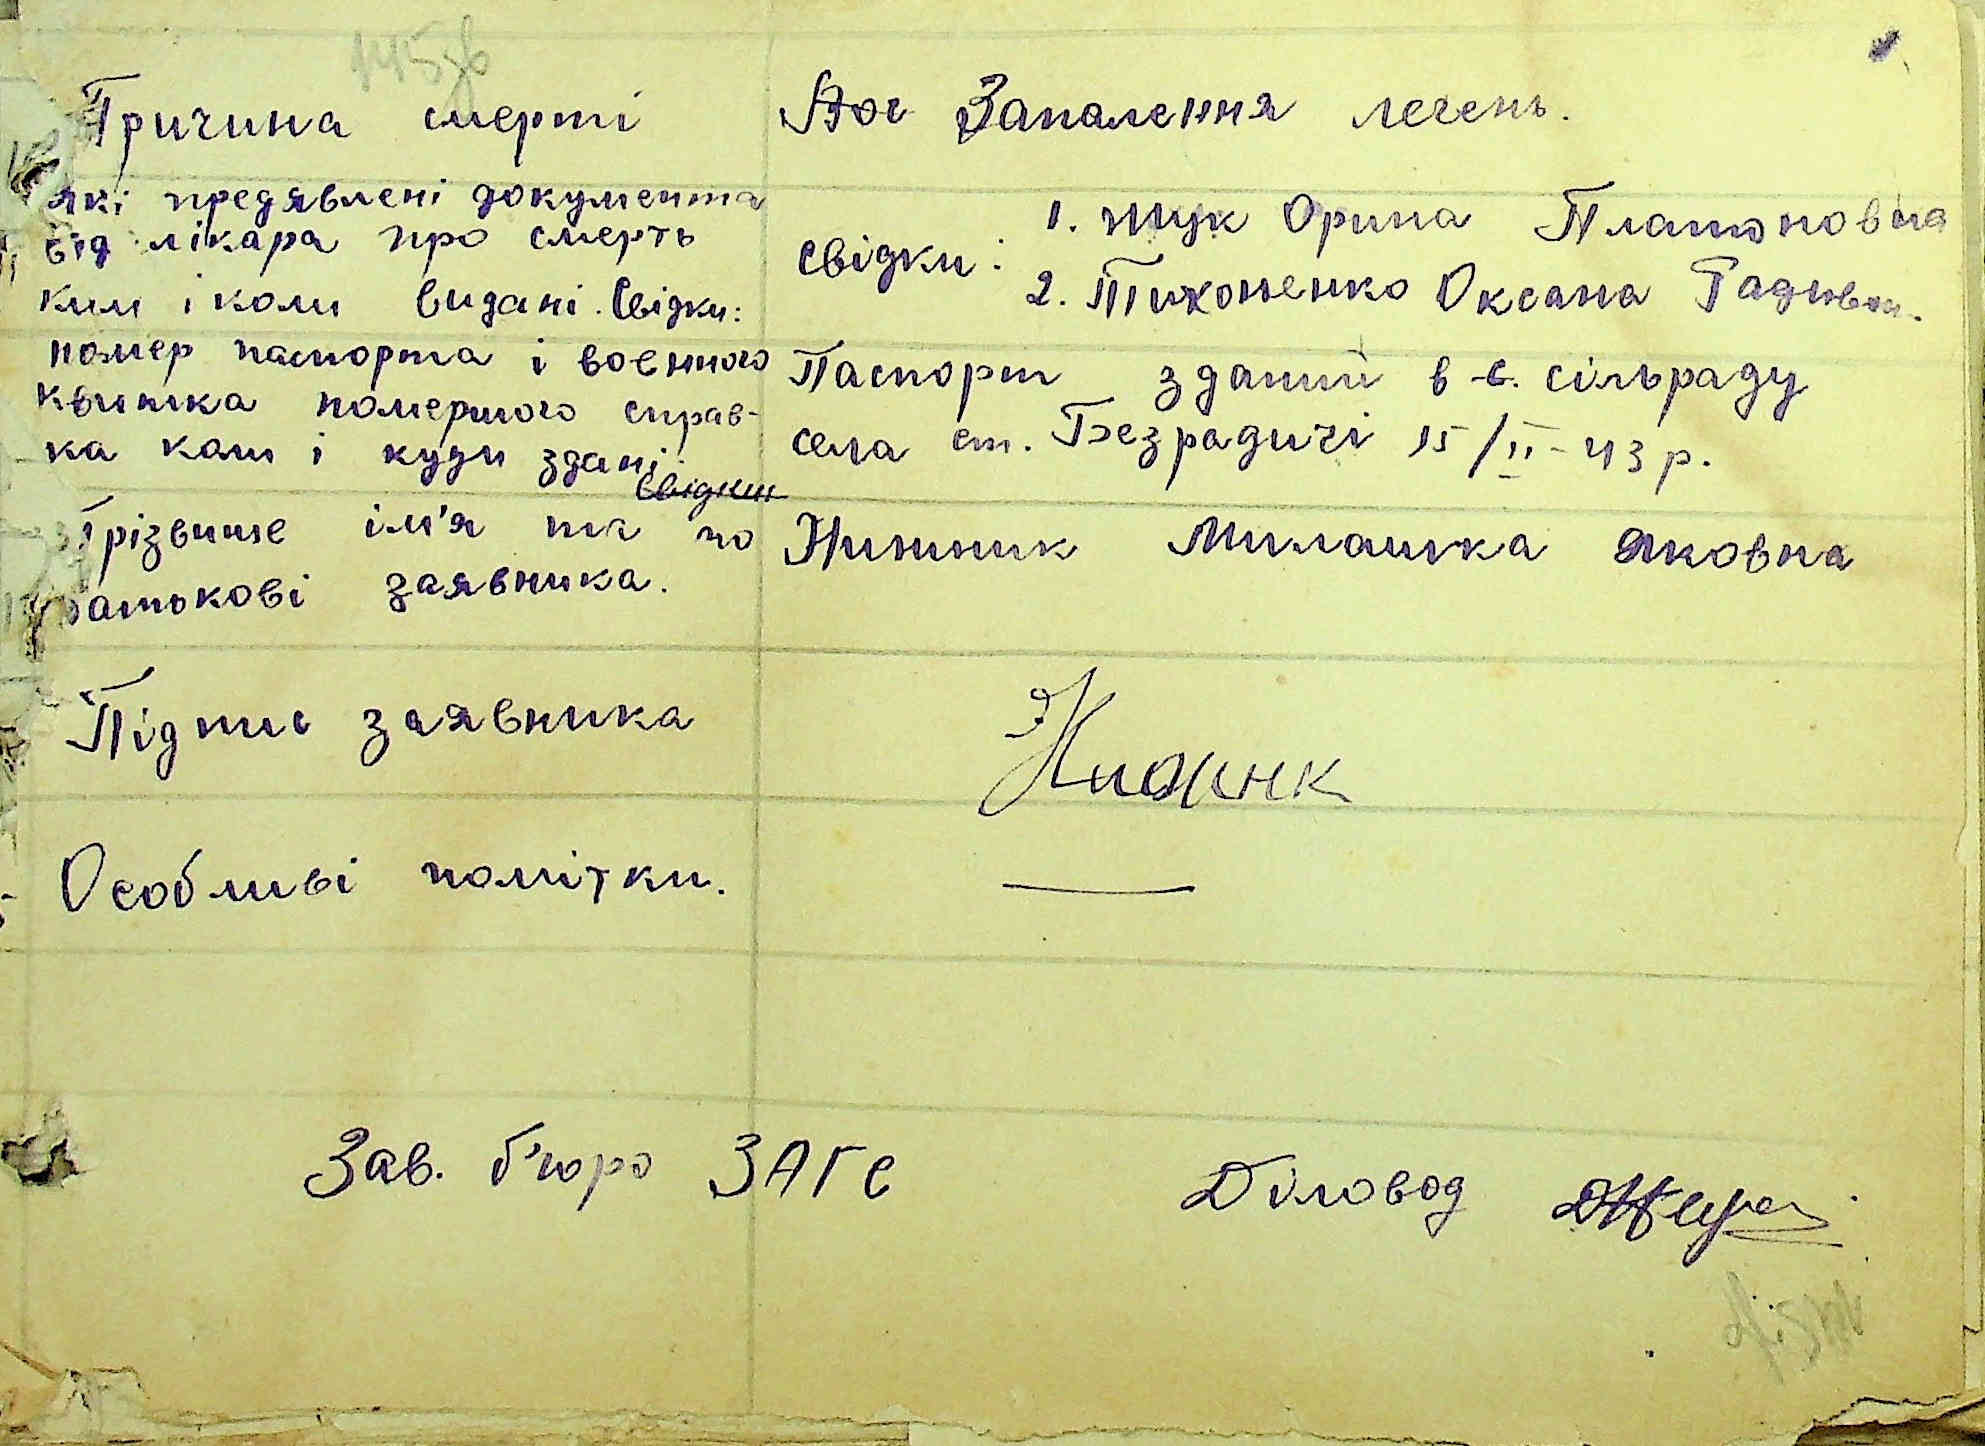 Причина смерті
Запалення легень.
які предявлені документа
від лікара про смерть
ким і коли видані. Свідки:
свідки:
1. Жук Орина Платоновна
2. Тихоненко Оксана Радивон.
номер паспорта і военного
квитка помершого справ-
ка коли і куди здані
Свідки
Паспорт зданий в с. сільраду
села ст. Безрадичі 15/II-43 р.
Прізвище ім'я та по
батькові заявника.
Нижник Милашка Яковна
Підпис заявника
Нижнк
Особливі помітки.
Зав. б'юро ЗАГС
Діловод